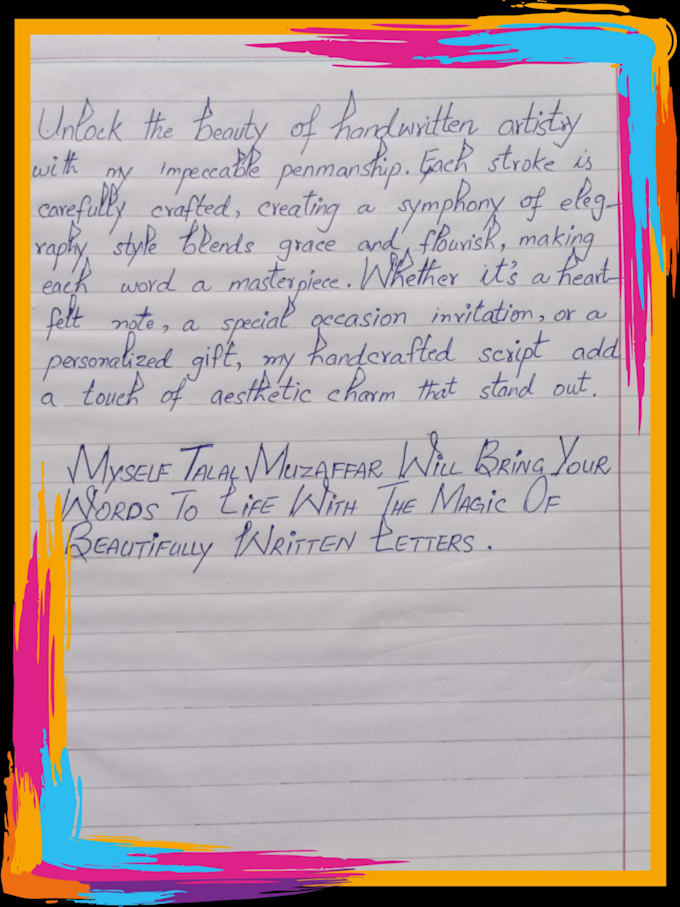 Unlock the beauty of handwritten artistry
with my impeccable penmanship. Each stroke is
carefully crafted, creating a symphony of eleg-
raphy style blends grace and, flourish, making
each word a masterpiece. Whether it's a heart-
felt note, a special occasion invitation, or a
personalized gift, my handcrafted script add
a touch of aesthetic charm that stand out.
MYSELF TALAL MUZAFFAR WILL BRING YOUR
WORDS TO LIFE WITH THE MAGIC OF
BEAUTIFULLY WRITTEN LETTERS.